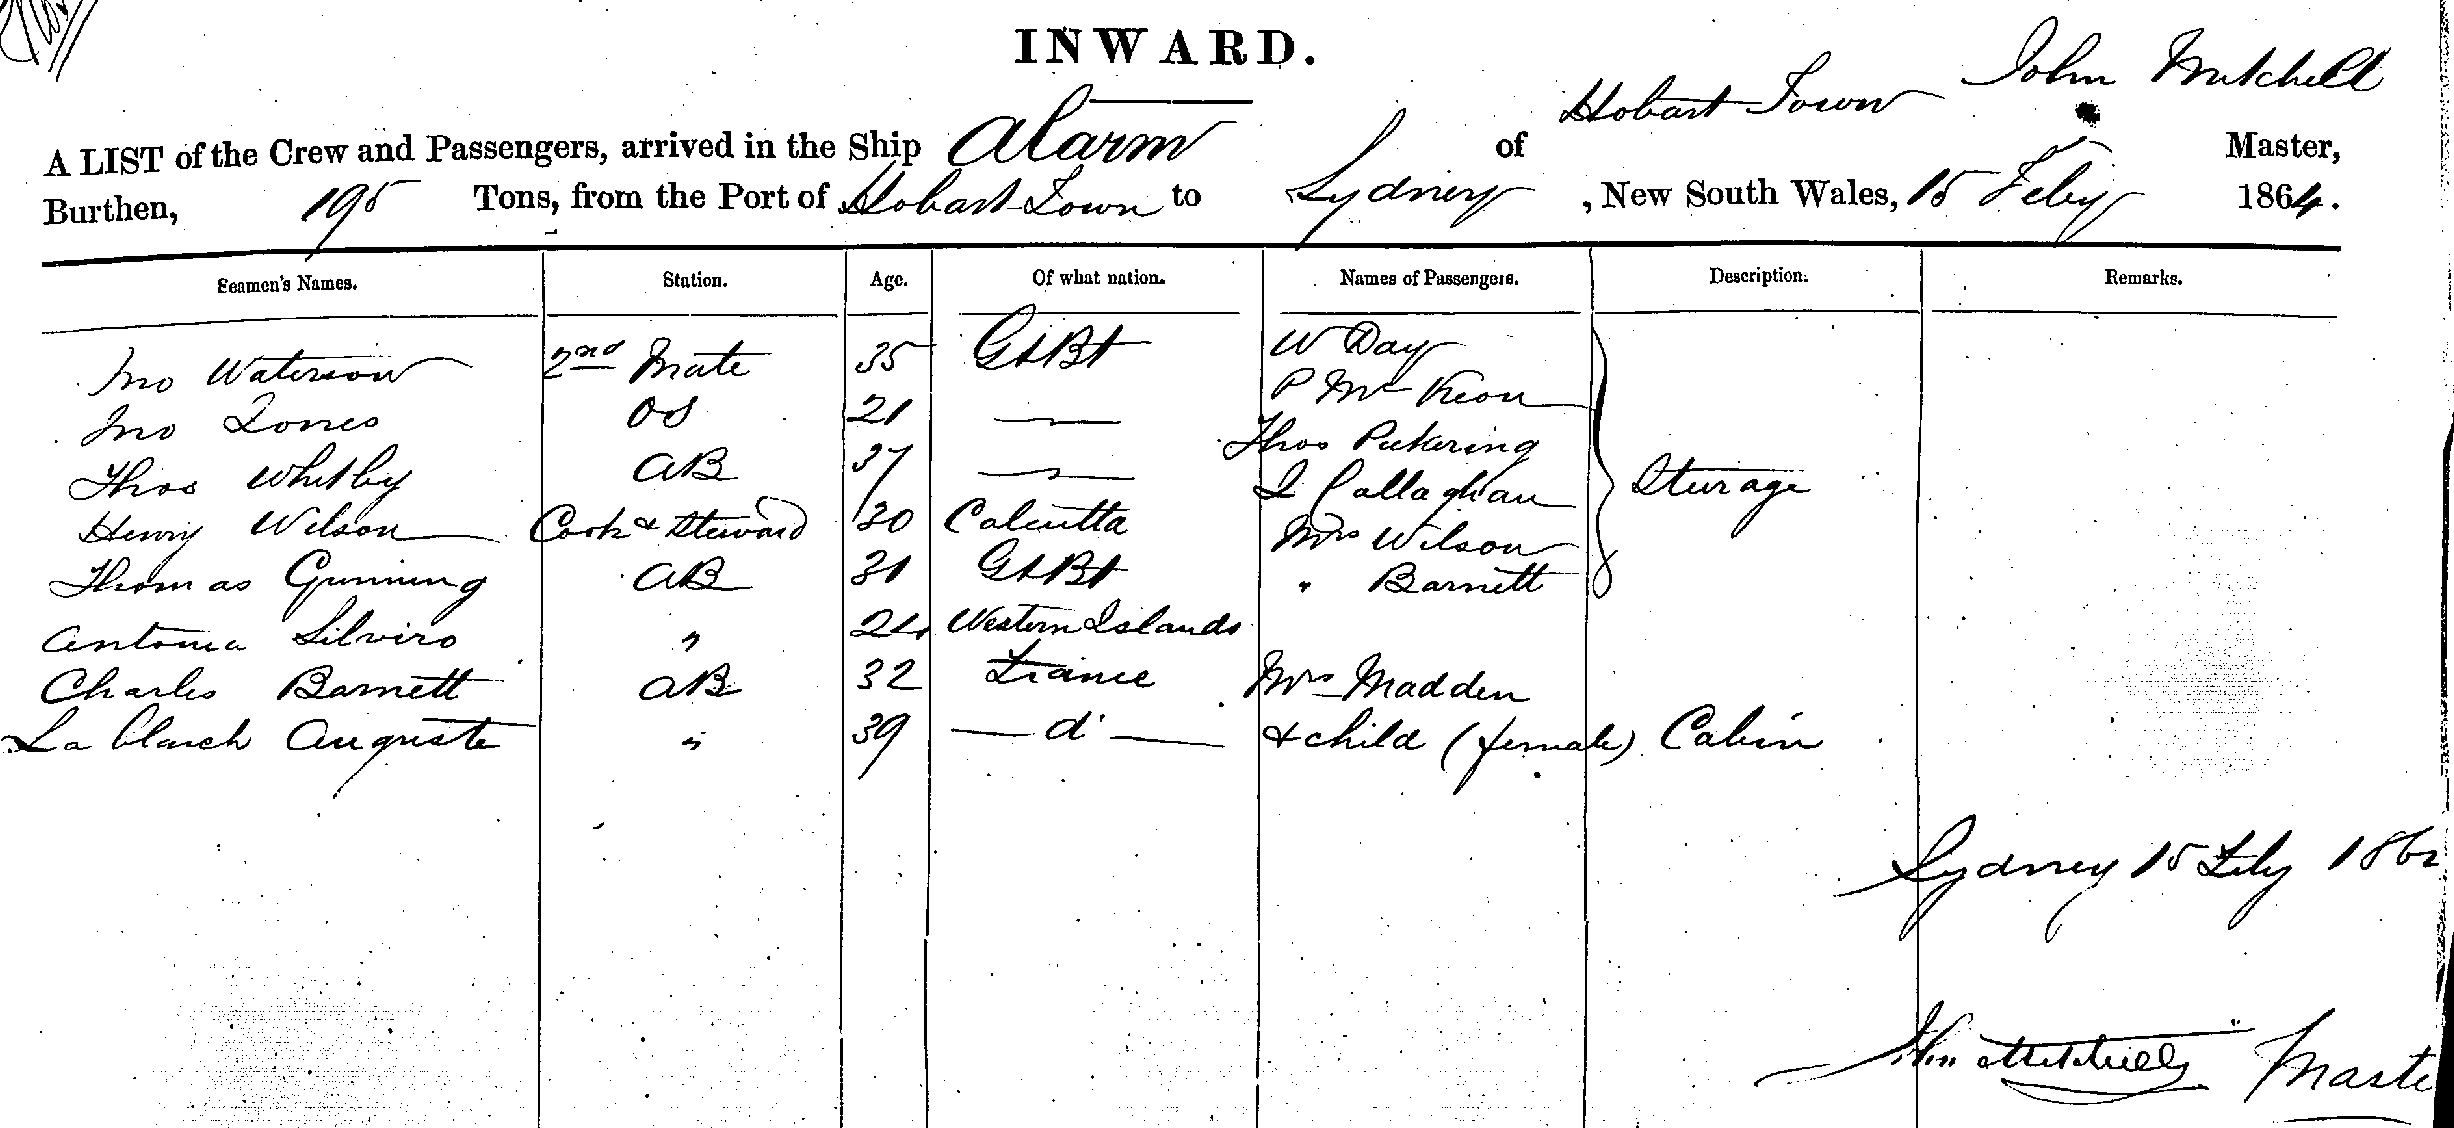 INWARD.
Hobart Town John Mitchell
A LIST of the Crew and Passengers, arrived in the Ship Alarm of Master,
Burthen, 195 Tons, from the Port of Hobart Town to Sydney, New South Wales, 15 Feby 1864.
Seamen's Names. Station. Age. Of what nation. Names of Passengers. Description. Remarks.
Jno Waterson 2nd Mate 35 Gt Bt W Day
Jno Jones OS 21 — P Mc Keon
Thos Whitby AB 37 — Thos Pickering
Henry Wilson Cook & Steward 30 Calcutta J Callaghan Sturage
Thomas Gunning AB 31 Gt Bt Mrs Wilson
" Barnett
Antonia Silviro " 24 Western Islands
Charles Barnett AB 32 France Mrs Madden
La Blanch Auguste " 39 — do — & child (female) Cabin
Sydney 15 Feby 186
John Mitchell Maste